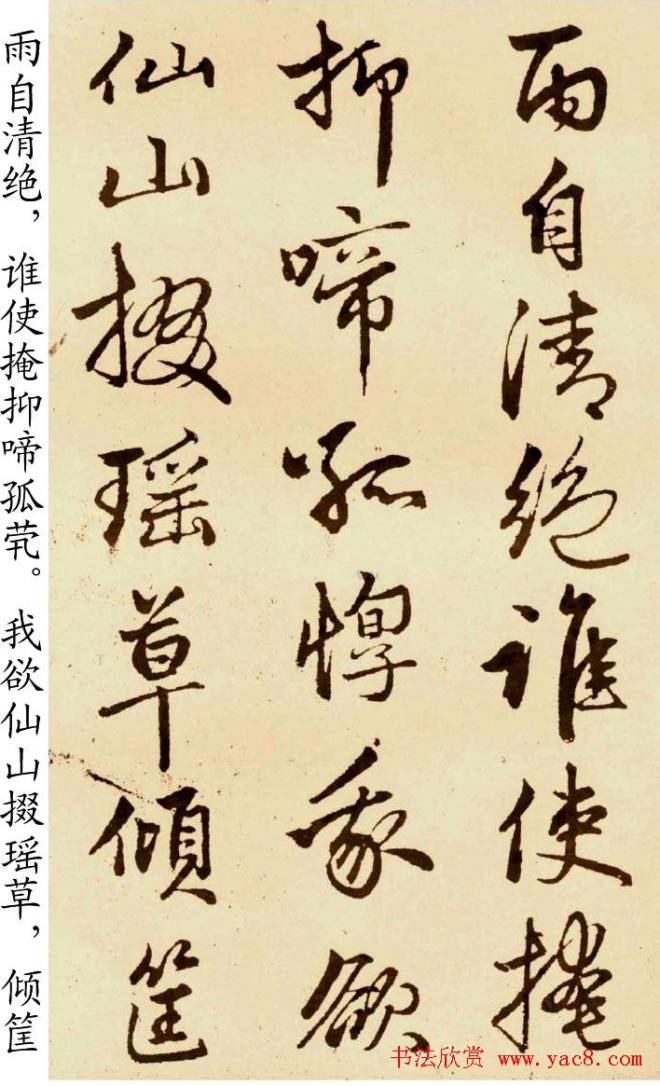 雨自清絕誰使掩
抑啼孤惸我欲
仙山掇瑤草傾筐
雨自清绝，谁使掩抑啼孤茕。我欲仙山掇瑶草，倾筐
书法欣赏 www.yac8.com